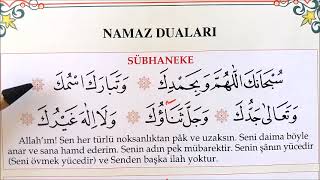 NAMAZ DUALARI
SÜBHANEKE
سُبْحَانَكَ اللّٰهُمَّ وَبِحَمْدِكَ وَتَبَارَكَ اسْمُكَ
وَتَعَالٰى جَدُّكَ وَجَلَّ ثَنَاؤُكَ وَلَا اِلٰهَ غَيْرُكَ
Allah'ım! Sen her türlü noksanlıktan pâk ve uzaksın. Seni daima böyle
anar ve sana hamd ederim. Senin adın pek mübarektir. Senin şânın yücedir
(Seni övmek yücedir) ve Senden başka ilah yoktur.